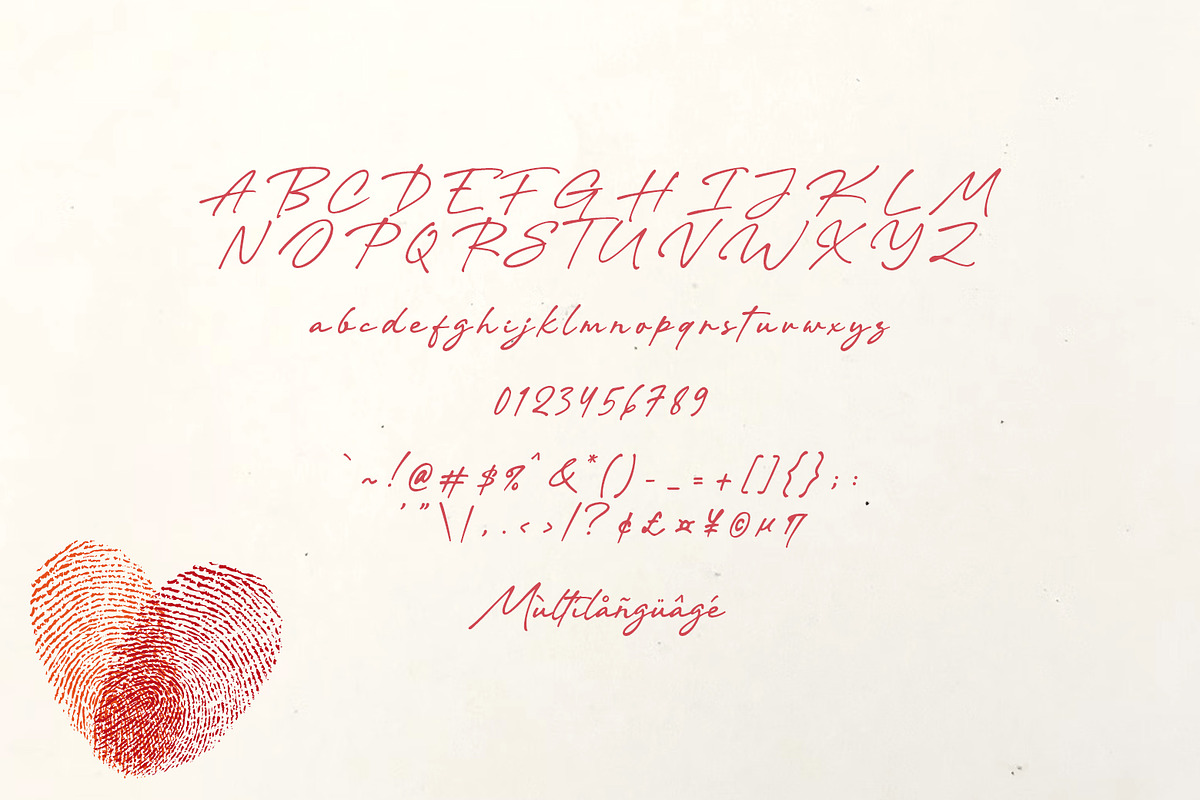 A B C D E F G H I J K L M
N O P Q R S T U V W X Y Z
a b c d e f g h i j k l m n o p q r s t u v w x y z
0 1 2 3 4 5 6 7 8 9
` ~ ! @ # $ % ^ & * ( ) - _ = + [ ] { } ; :
' " \ | , . < > / ? ¢ £ ¤ ¥ © µ π
Mùltîlåñgüâgé